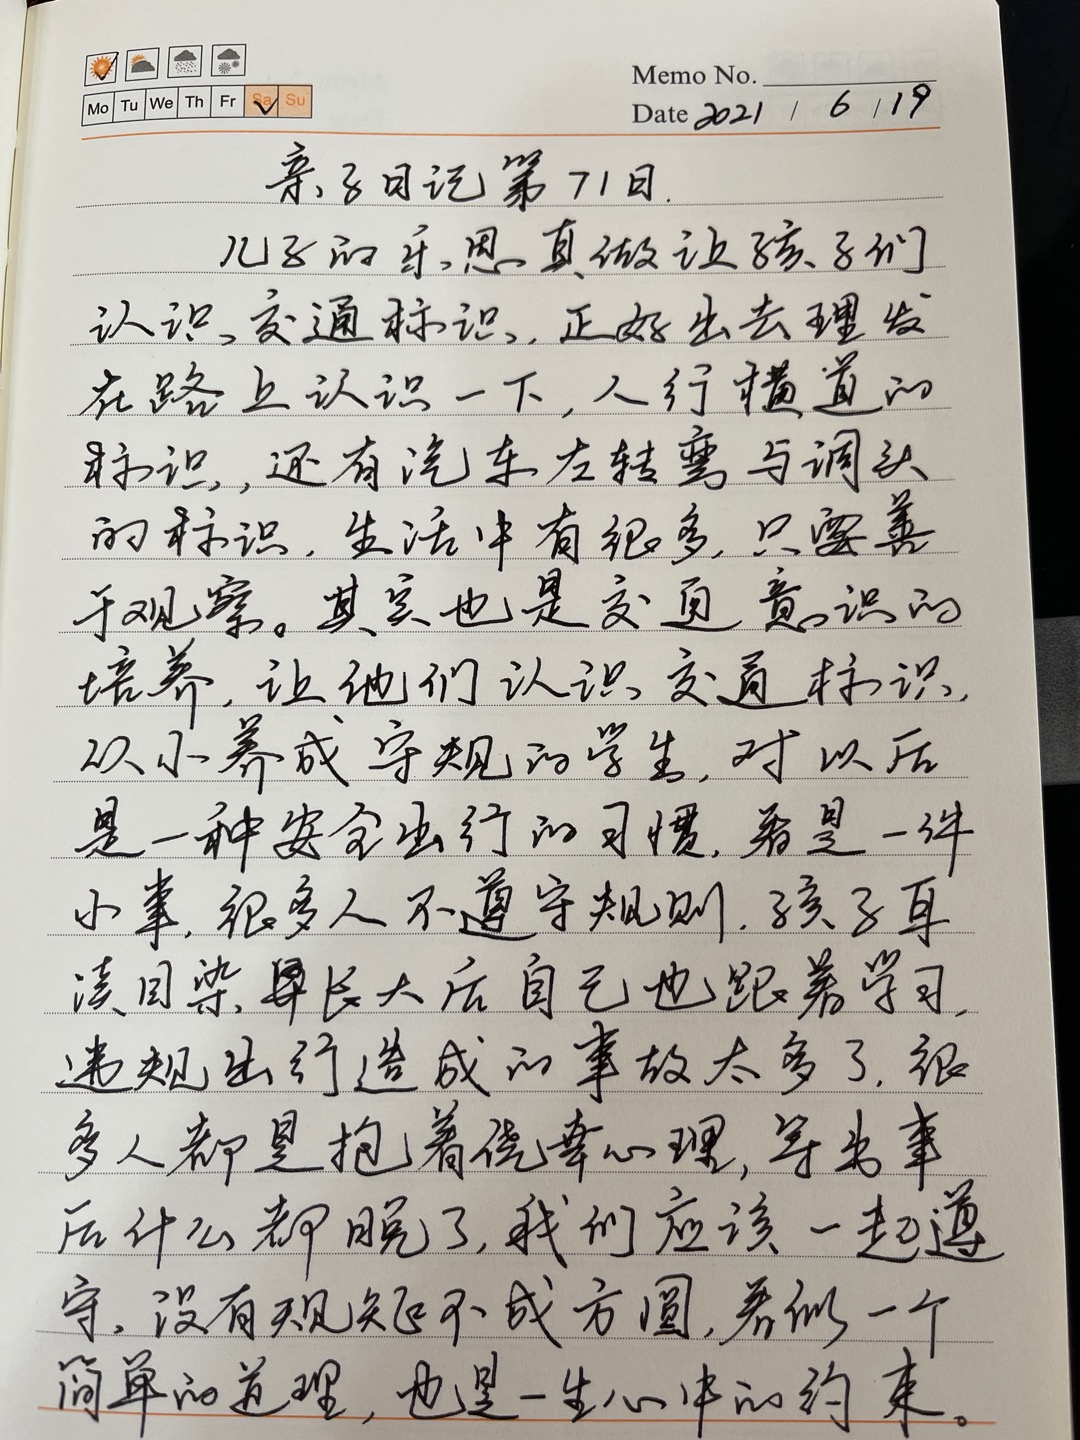 Memo No.
Mo Tu We Th Fr Sa Su
Date 2021 / 6 / 19
亲子日记第71日.
儿子的乐思真做让孩子们
认识交通标识,正好出去理发
在路上认识一下,人行横道的
标识,还有汽车左转弯与调头
的标识,生活中有很多,只要善
于观察。其实也是交通意识的
培养,让他们认识交通标识,
从小养成守规的学生,对以后
是一种安全出行的习惯,看是一件
小事,很多人不遵守规则,孩子耳
渎目染,长大后自己也跟着学习,
违规出行造成的事故太多了,很
多人都是抱着侥幸心理,等出事
后什么都晚了,我们应该一起遵
守,没有规矩不成方圆,看似一个
简单的道理,也是一生心中的约束。